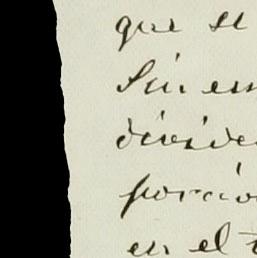 que se
Sin em
divide
porcio
en el t